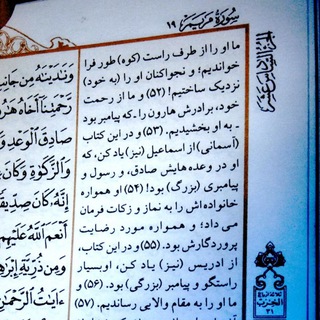 سورة مریم ۱۹
ما او را از طرف راست (کوه) طور فرا
خواندیم؛ و نجواکنان او را (به خود)
نزدیک ساختیم! (۵۲) و ما از رحمت
خود، برادرش هارون را -که پیامبر بود
- به او بخشیدیم. (۵۳) و در این کتاب
(آسمانی) از اسماعیل (نیز) یاد کن، که
او در وعده‌هایش صادق، و رسول و
پیامبری (بزرگ) بود! (۵۴) او همواره
خانواده‌اش را به نماز و زکات فرمان
می‌داد؛ و همواره مورد رضایت
پروردگارش بود. (۵۵) و در این کتاب،
از ادریس (نیز) یاد کن، او بسیار
راستگو و پیامبر (بزرگی) بود. (۵۶) و
ما او را به مقام والایی رساندیم. (۵۷)
الجزء السادس عشر
الحزب
۳۱
وَنَادَيْنَاهُ مِن جَانِبِ
رَحْمَتِنَا أَخَاهُ
صَادِقَ الْوَعْدِ
وَالزَّكَوٰةِ وَكَانَ
إِنَّهُ كَانَ صِدِّيقًا
أَنْعَمَ اللَّهُ عَلَيْهِم
وَمِن ذُرِّيَّةِ
ءَايَٰتُ الرَّحْمَٰنِ